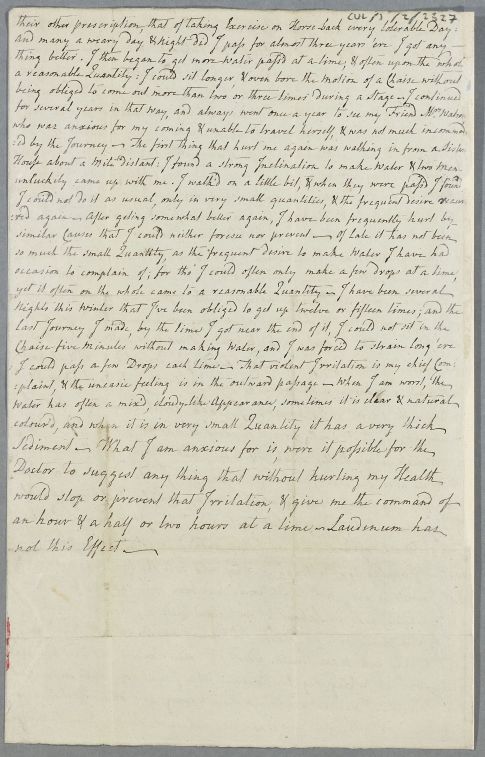 CUL/1/2/2327
their other prescription, that of taking Exercise on Horse back every tolerable Day:
and many a weary day & Night did I pass for almost three years 'ere I got any
thing better. I then began to get more Water passd at a time, & often upon the whole
a reasonable Quantity: I coud sit longer, & even bore the motion of a Chaise without
being obliged to come out more than two or three times during a Stage — I continued
for several years in that way, and always went once a year to see my Friend Mrs Watson
who was anxious for my coming & unable to travel herself, & was not much incommod
:'d by the Journey — The first thing that hurt me again was walking in from a
House about a Mile distant: I found a strong Inclination to make Water & two Men
unluckily came up with me: I walk'd on a little bit, & when they were pass'd I found
I could not do it as usual, only in very small quantities, & the frequent desire recur
:red again — After geting somewhat better again, I have been frequently hurt by
similar Causes that I coud neither foresee nor prevent — Of late it has not been
so much the small Quantity, as the frequent desire to make Water I have had
occasion to complain of; for tho' I could often only make a few drops at a time,
yet it often on the whole came to a reasonable Quantity — I have been several
Nights this Winter that I've been obliged to get up twelve or fifteen times; and the
last Journey I made, by the time I got near the end of it, I could not sit in the
Chaise five Minutes without making Water, and I was forced to strain long 'ere
I could pass a few Drops each time — That violent Irritation is my chief Com:
:plaint, & the uneasie feeling is in the outward passage — When I am worst, the
Water has often a mix'd, cloudylike Appearance, sometimes it is clear & natural
colourd, and when it is in very small Quantity it has a very thick
Sediment — What I am anxious for is were it possible for the
Doctor to suggest any thing that without hurting my Health
would stop or prevent that Irritation, & give me the command of
an hour & a half or two hours at a time — Laudenum has
not this Effect —